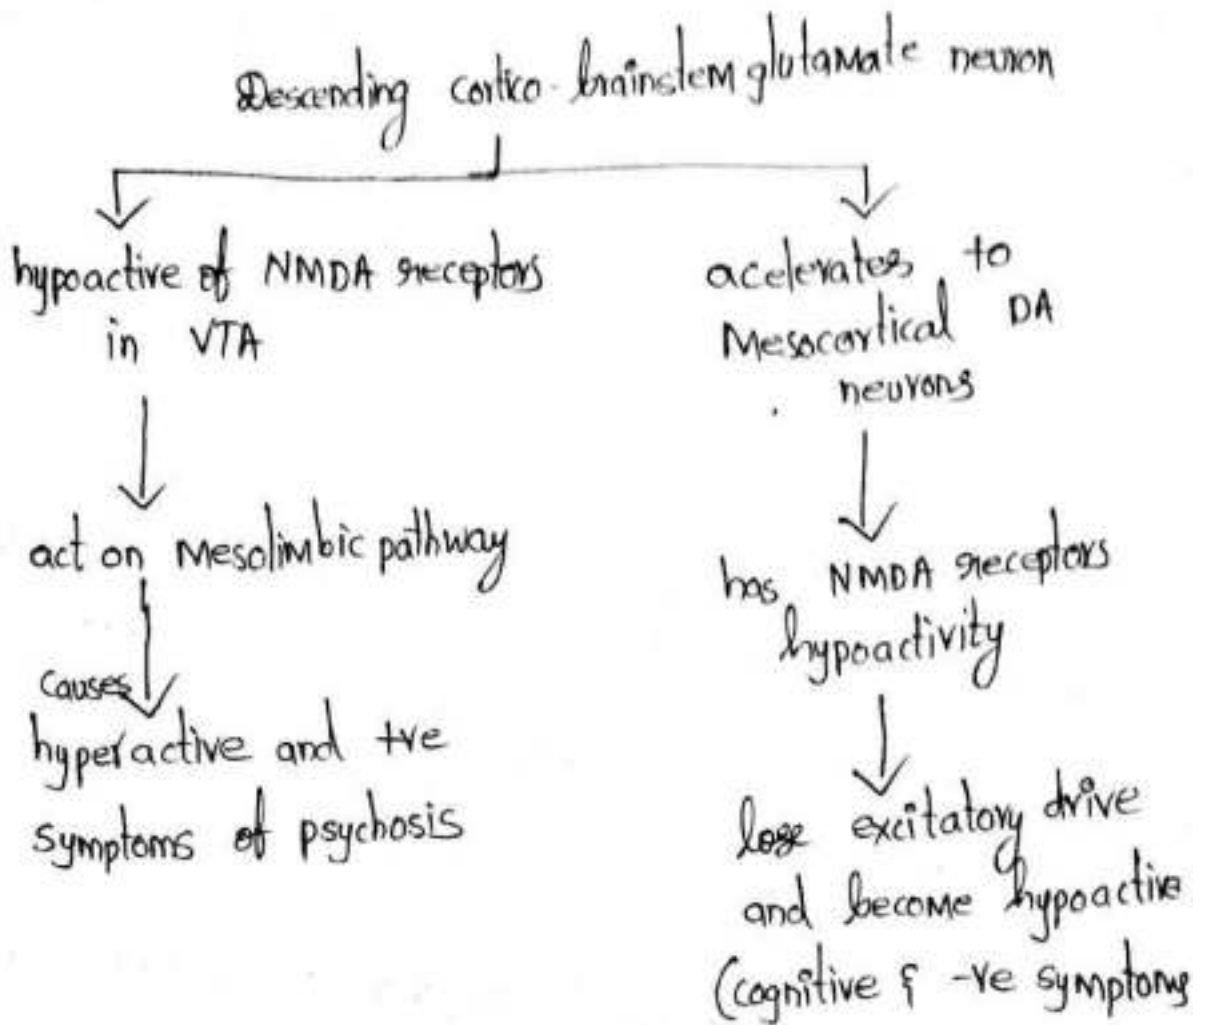 Descending cortico-brainstem glutamate neuron
hypoactive of NMDA receptors
in VTA
act on Mesolimbic pathway
causes
hyperactive and +ve
symptoms of psychosis
acelerates to
Mesocortical DA
neurons
has NMDA receptors
hypoactivity
lose excitatory drive
and become hypoactive
(cognitive & -ve symptoms